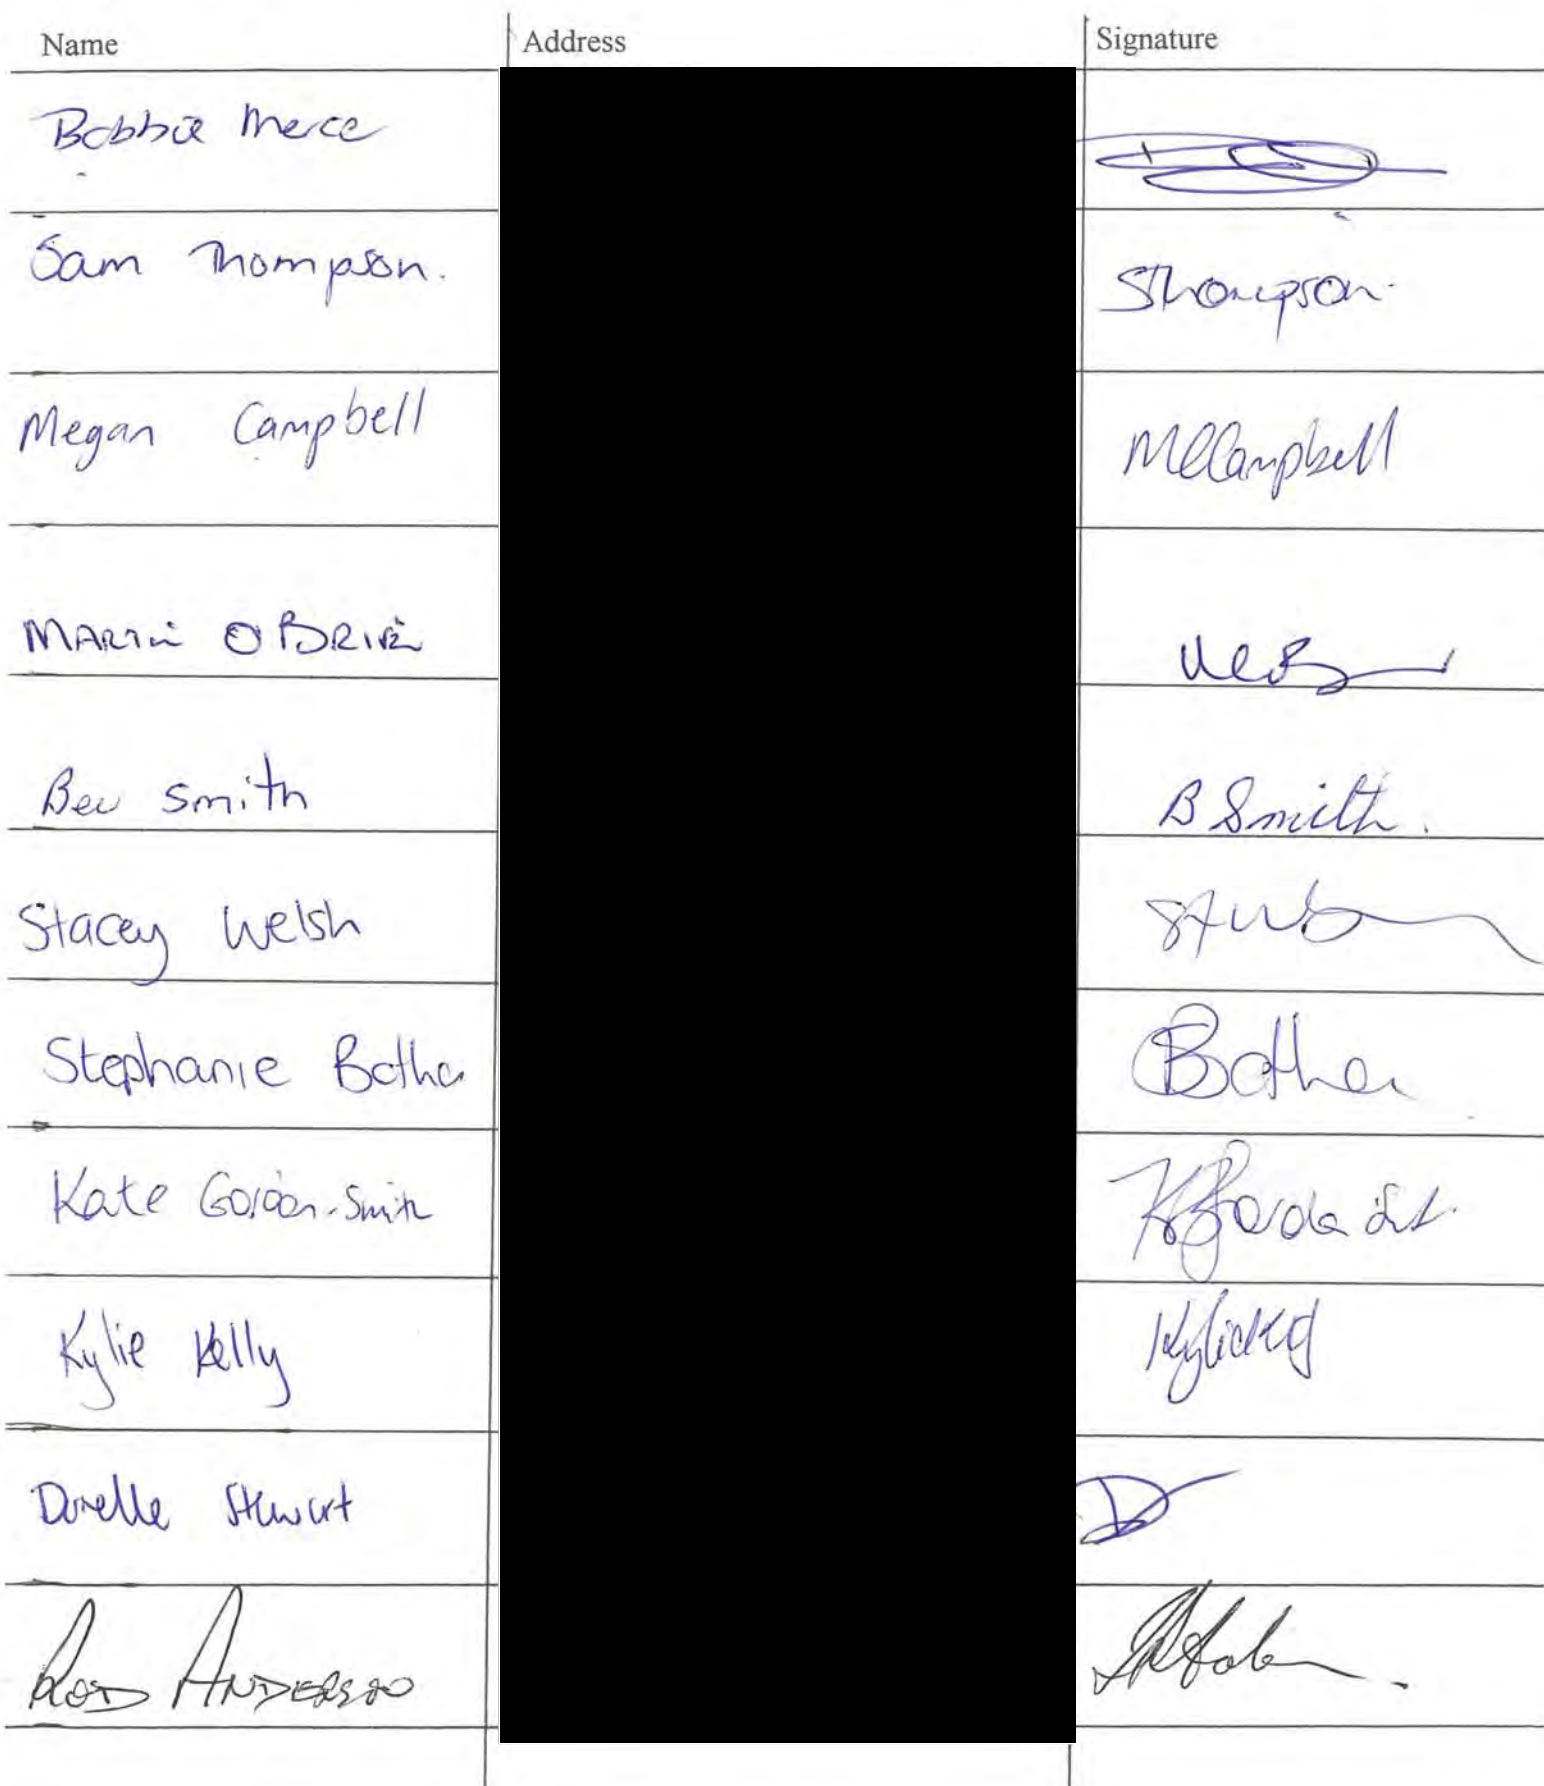 Name Address Signature
Bobbie Merce
Sam Thompson. SThompson.
Megan Campbell MCCampbell
MARTIN O'BRIEN
Bev Smith B Smith.
Stacey Welsh
Stephanie Botha SBotha
Kate Gordon-Smith
Kylie Kelly
Stewart
ROD ANDERSON